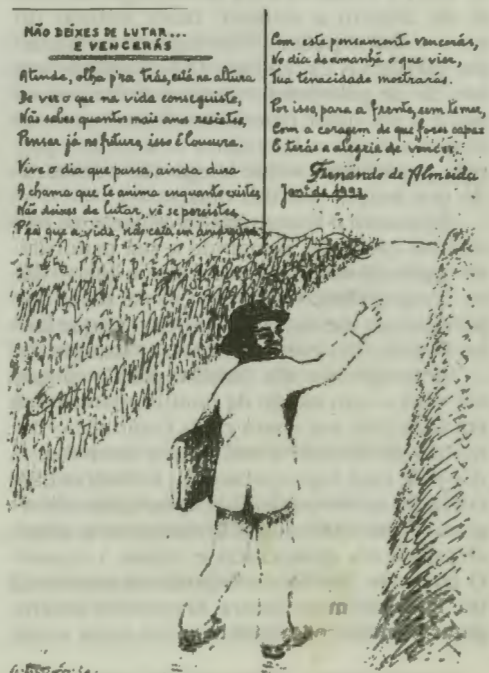 NÃO DEIXES DE LUTAR...
E VENCERÁS
Atende, olha p'ra trás, está na altura
De ver o que na vida conseguiste,
Não sabes quantos mais anos resistes,
Pensar já no futuro, isso é loucura.
Vive o dia que passa, ainda dura
A chama que te anima enquanto existes,
Não deixes de lutar, vê se persistes,
P'ra que a vida, não está em
Com este pensamento vencerás,
No dia de amanhã o que vier,
Tua tenacidade mostrarás.
Por isso, para a frente, sem temer,
Com a coragem de que fores capaz
E terás a alegria de vencer.
Fernando de Almeida
Janº de 1991